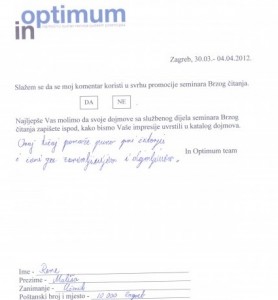 in optimum
Zagreb, 30.03.- 04.04.2012.
Slažem se da se moj komentar koristi u svrhu promocije seminara Brzog čitanja.
DA NE
Najljepše Vas molimo da svoje dojmove sa službenog dijela seminara Brzog
čitanja zapišete ispod, kako bismo Vaše impresije uvrstili u katalog dojmova.
In Optimum team
Ovaj tečaj pomaže puno pri čitanju
i čini ga
Ime -
Prezime -
Zanimanje -
Poštanski broj i mjesto - 10 000 Zagreb